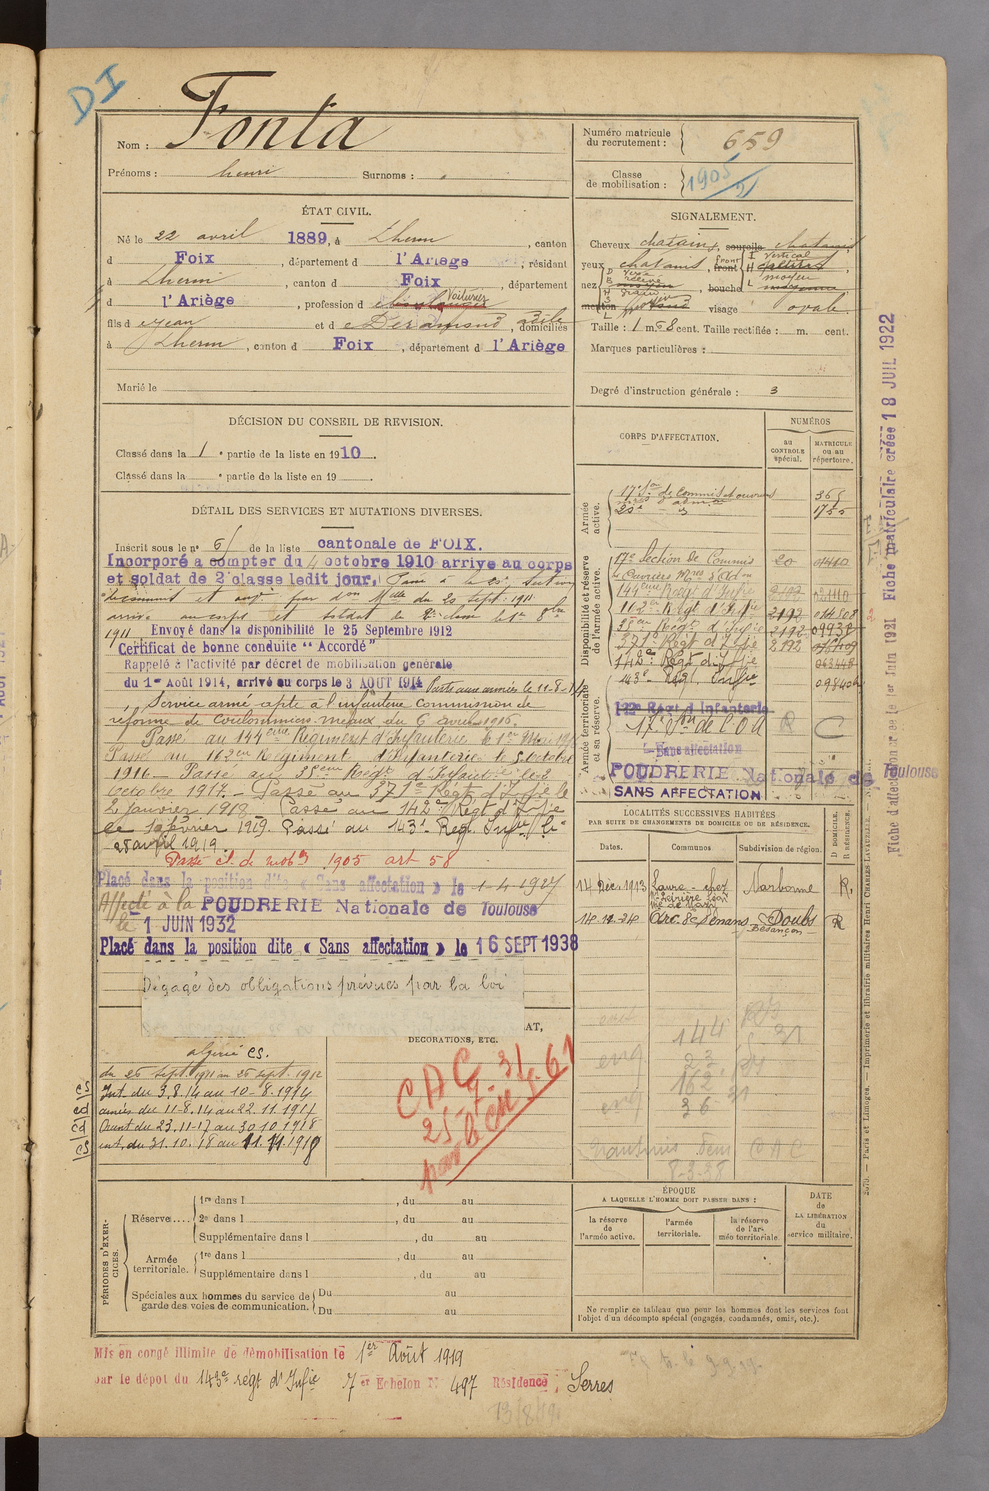 DI
Nom : Fonta
Prénoms : henri Surnoms :
Numéro matricule du recrutement : 659
Classe de mobilisation : 1905/21
ÉTAT CIVIL.
Né le 22 avril 1889, à Lherm, canton
d Foix, département d l'Ariège, résidant
à Lherm, canton d Foix, département
d l'Ariège, profession d Voiturier
fils d Jean et d e Deramond, adèle, domiciliés
à Lherm, canton d Foix, département d l'Ariège
Marié le
SIGNALEMENT.
Cheveux chatains, sourcils chatains
yeux chatains, front Vertical
nez moyen, bouche
menton visage ovale.
Taille : 1 m. 58 cent. Taille rectifiée : m. cent.
Marques particulières :
Degré d'instruction générale : 3
DÉCISION DU CONSEIL DE REVISION.
Classé dans la 1e partie de la liste en 1910.
Classé dans la e partie de la liste en 19
DÉTAIL DES SERVICES ET MUTATIONS DIVERSES.
Inscrit sous le n° 65 de la liste cantonale de FOIX.
Incorporé à compter du 4 octobre 1910 arrivé au corps
et soldat de 2e classe ledit jour. Passé à la 20e Section
de commis et ouv. par don Mlle du 20 Sept. 1911
arrivé au corps et soldat de 2e classe le 1er 8bre
1911 Envoyé dans la disponibilité le 25 Septembre 1912
Certificat de bonne conduite "Accordé"
Rappelé à l'activité par décret de mobilisation générale
du 1er Août 1914, arrivé au corps le 3 AOUT 1914 Parti aux armées le 11-8-14
Service armé apte à l'infanterie Commission de
réforme de Coulommiers-meaux du 6 avril 1916.
Passé au 144eme Régiment d'Infanterie le 1er Mai 1916
Passé au 162eme Régiment d'Infanterie le 5 octobre
1916 — Passé au 35eme Régt d'Infanterie le 2
octobre 1917. — Passé au 371e Régt d'Infie le
2 janvier 1918 Passé au 142e Régt d'Infie
le 10 février 1919. Passé au 143e Reg. Infie le
25 avril 1919.
Passé cl. de mobon 1905 art 58
Placé dans la position dite « Sans affectation » le 1-4-1927
Affecté à la POUDRERIE Nationale de Toulouse
le 1 JUIN 1932
Placé dans la position dite « Sans affectation » le 16 SEPT 1938
Dégagé des obligations prévues par la loi
CORPS D'AFFECTATION.
NUMÉROS
au CONTROLE spécial.
MATRICULE ou au répertoire.
Armée active.
17e Son de Commis et ouvriers 365
20e — d° 1755
Disponibilité et réserve de l'armée active.
17e Section de Commis
& Ouvriers Mres d'Adon 20
144eme Régt d'Infie 2192
162e Régt d'Infie 2192
35e Régt d'Infie 2192
371e Régt d'Infie 2192
142e Régt d'Infie
143e Régt Infie
Armée territoriale et sa réserve.
122e Regt d'Infanterie
17e Son de C.O.A R C
Sans affectation
POUDRERIE Nationale de Toulouse
SANS AFFECTATION
LOCALITÉS SUCCESSIVES HABITÉES
PAR SUITE DE CHANGEMENTS DE DOMICILE OU DE RÉSIDENCE.
Dates. Communes Subdivision de région. D DOMICILE. R RÉSIDENCE.
14 Déc. 1913 Laure - chez Narbonne R.
14-12-24 Arc & Senans Doubs R
Besançon
AT,
DÉCORATIONS, ETC.
algérie CS.
du 26 sept. 1911 au 25 sept. 1912
CS Int. du 3.8.14 au 10-8-1914
cd armées du 11-8.14 au 22.11.1917
cd Aunt du 23.11-17 au 30 10 1918
CS int. du 31.10.18 au 11.11.1918
CAC
144
162
CAC
8-2-38
PÉRIODES D'EXERCICES.
Réserve.... 1re dans l , du au
2e dans l , du au
Supplémentaire dans l , du au
Armée territoriale. 1re dans l , du au
Supplémentaire dans l , du au
Spéciales aux hommes du service de garde des voies de communication. Du au
Du au
ÉPOQUE
A LAQUELLE L'HOMME DOIT PASSER DANS :
la réserve de l'armée active.
l'armée territoriale.
la réserve de l'armée territoriale
DATE de LA LIBÉRATION du service militaire.
Ne remplir ce tableau que pour les hommes dont les services font
l'objet d'un décompte spécial (engagés, condamnés, omis, etc.).
Mis en congé illimité de démobilisation le 1er Août 1919
par le dépot du 143e régt d'Infie 7er Echelon N° 497 Résidence : Serres
13/8/19
Fiche d'affectation créée le 1er Juin 1921 Fiche matriculaire créée 18 JUIL 1922
Paris et Limoges. — Imprimerie et librairie militaires Henri CHARLES-LAVAUZELLE.